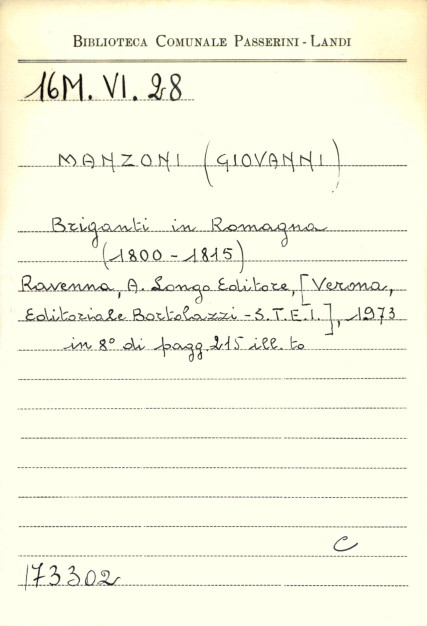 BIBLIOTECA COMUNALE PASSERINI - LANDI
16M. VI. 28
MANZONI (GIOVANNI)
Briganti in Romagna
(1800 - 1815)
Ravenna, A. Longo Editore, [Verona,
Editoriale Bortolazzi - S.T.E.I.], 1973
in 8° di pagg. 215 ill. to
C
173302